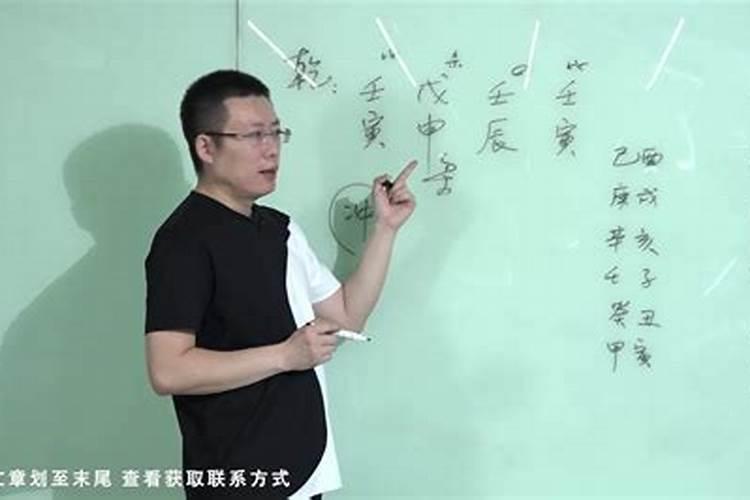 比 杀 比
乾： 壬 戊 壬 壬
寅 申 辰 寅
冲
己酉
庚戌
辛亥
壬子
癸丑
甲寅
文章划至末尾 查看获取联系方式